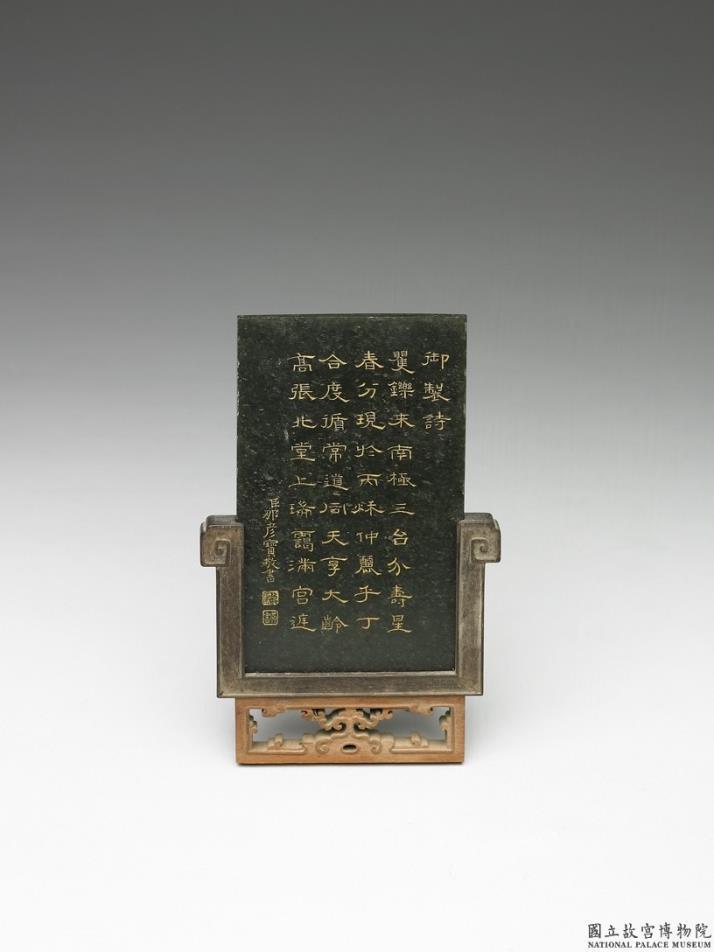 御製詩
矍鑠来南極三台介壽星
春分現於丙秌仲麗乎丁
合度循常道同天享大齡
高張北堂上瑞靄滿宮廷
臣那彥寶敬書
國立故宮博物院
NATIONAL PALACE MUSEUM